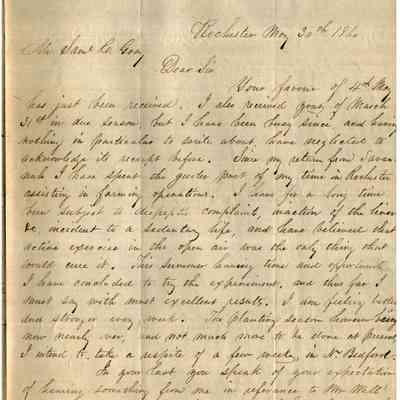 Rochester May 30th 18
Mr. Saml C. Gray
Dear Sir
Your favour of 4th May
has just been received. I also received yours of March
31st in due season, but I have been busy since and having
nothing in particular to write about have neglected to
acknowledge its receipt before. Since my return from Savan-
nah I have spent the greater part of my time in Rochester
assisting in farming operations. I have for a long time
been subject to dyspeptic complaint, inaction of the liver
&c. incident to a sedentary life, and have believed that
active exercise in the open air was the only thing that
would cure it. This summer having time and opportunity
I have concluded to try the experiment, and thus far I
must say with most excellent results. I am feeling better
and stronger every week. The planting season however being
now nearly over, and not much more to be done at present
I intend to take a respite of a few weeks in N. Bedford.
In your last you speak of your expectation
of hearing something from me in reference to Mr Well